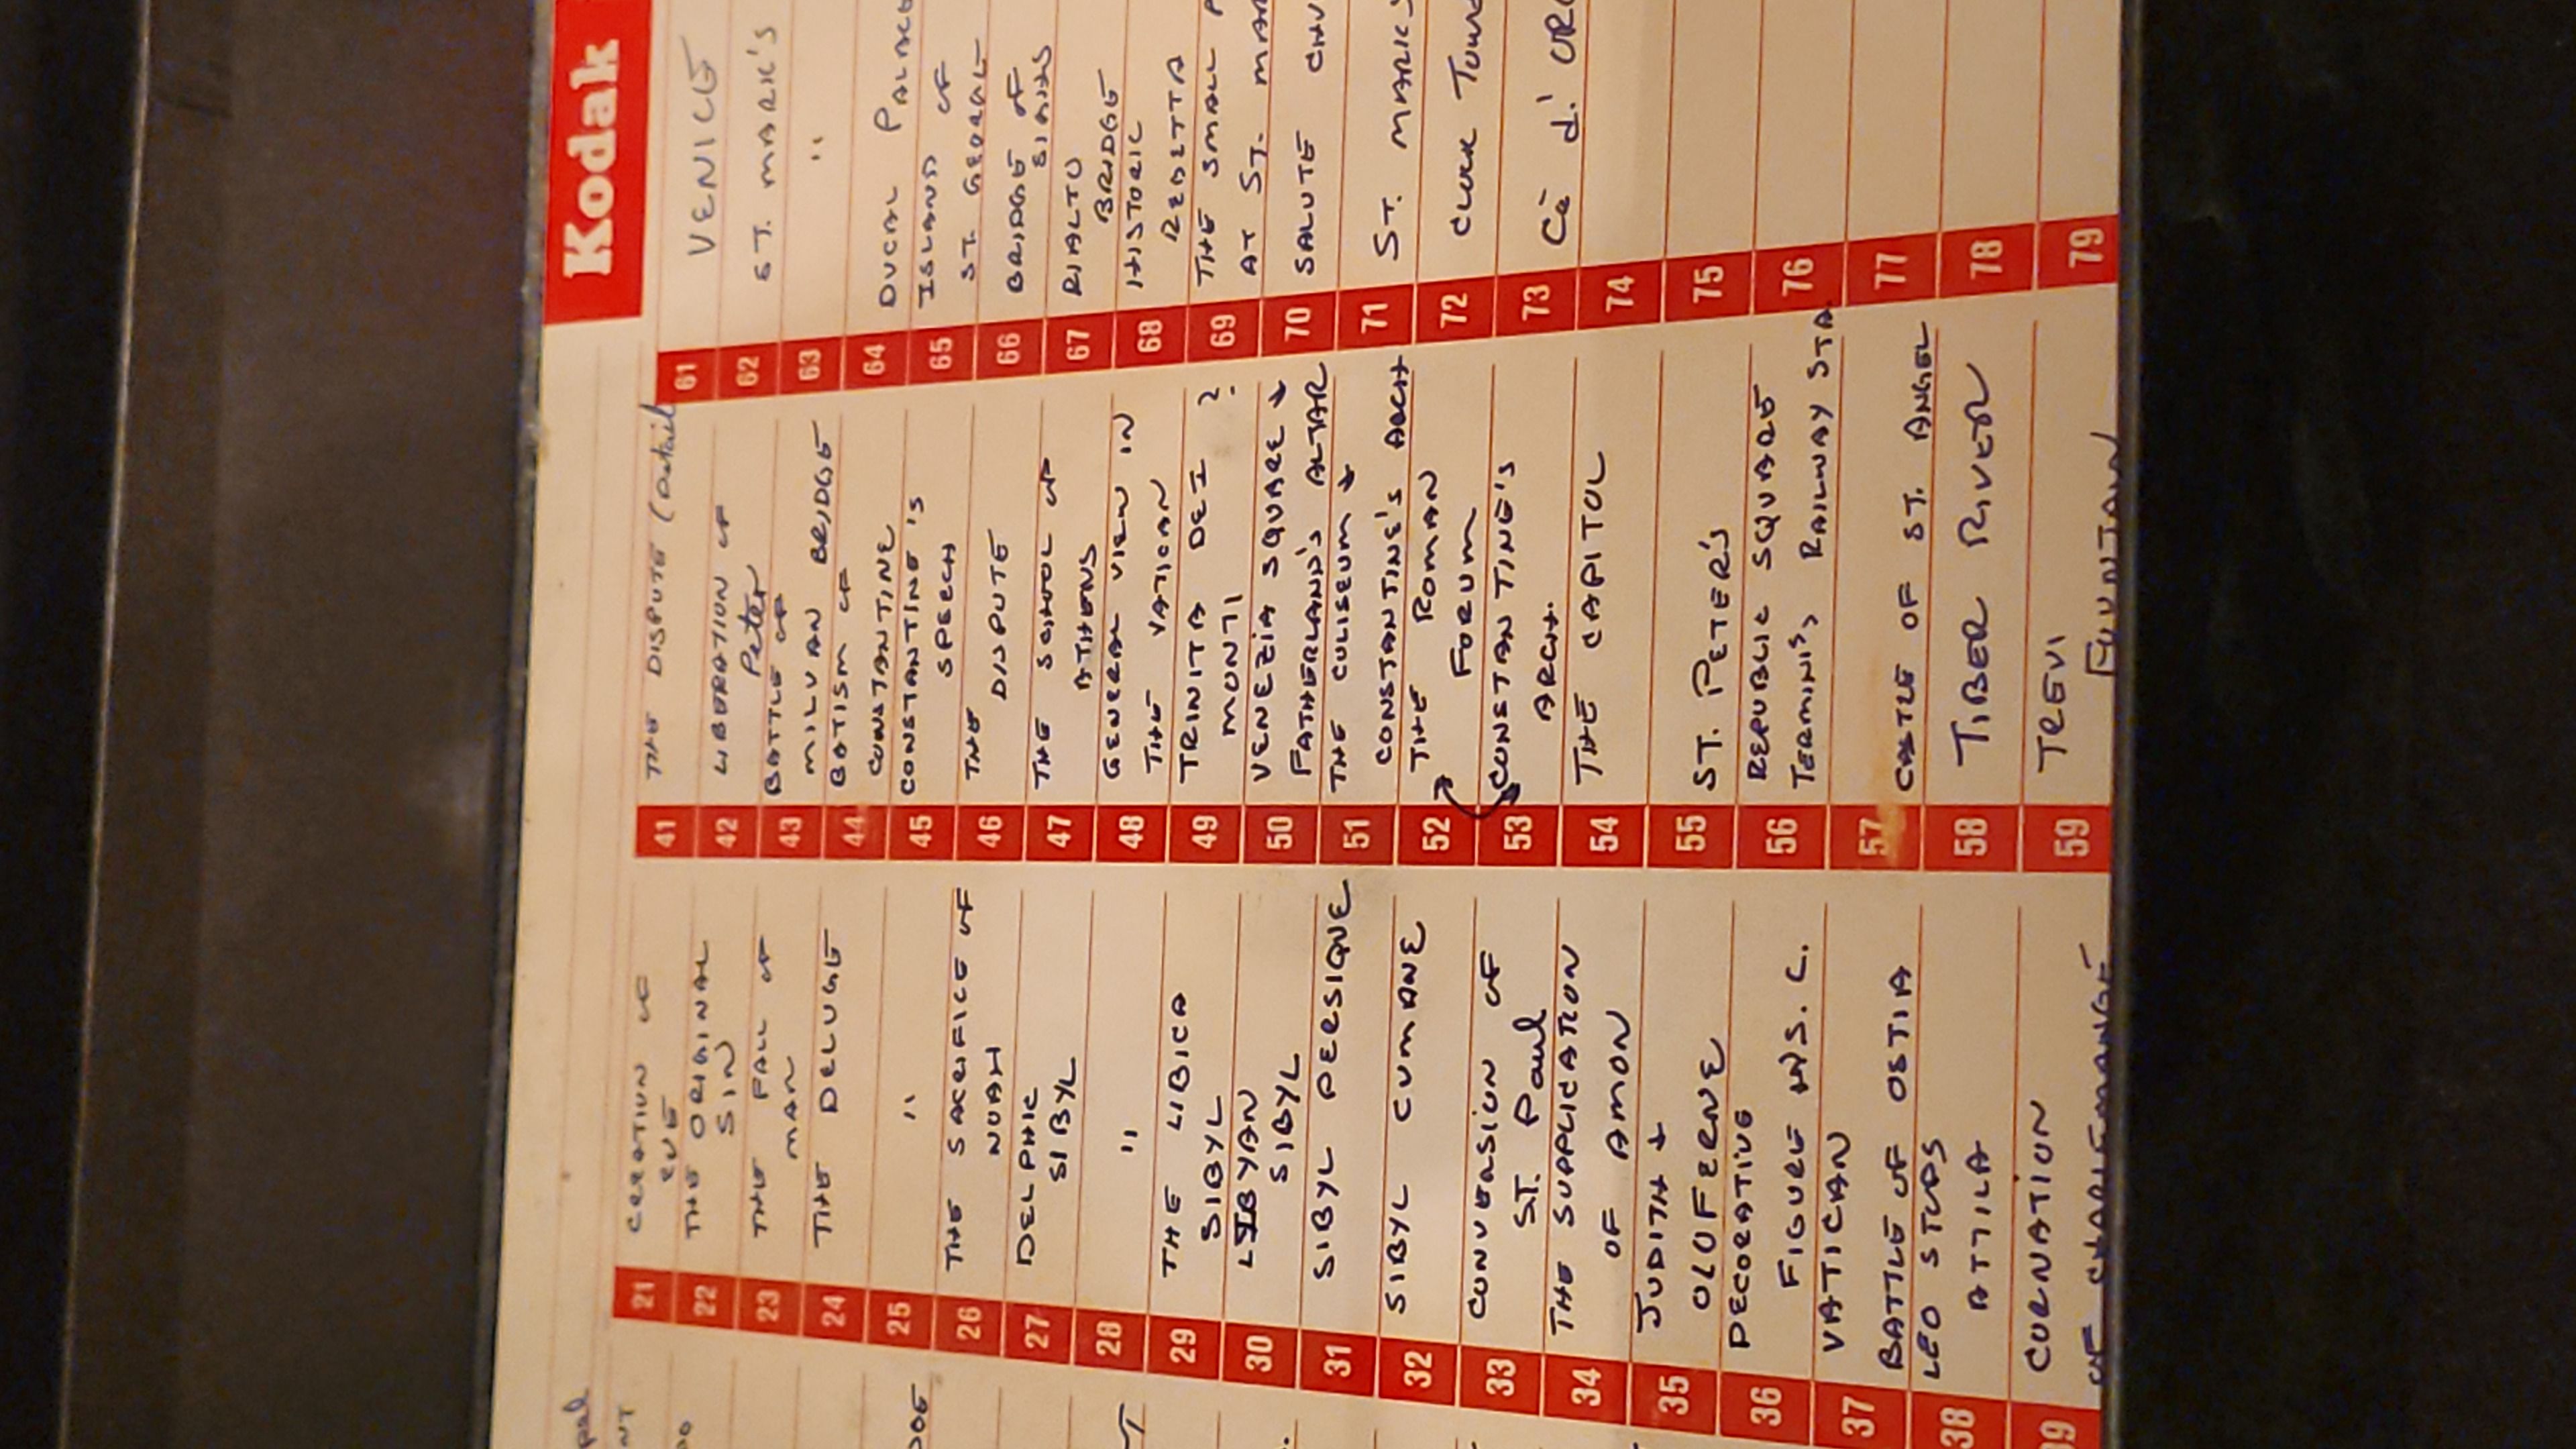 Kodak
21 CREATION OF
EVE
22 THE ORIGINAL
SIN
23 THE FALL OF
MAN
24 THE DELUGE
25 "
26 THE SACRIFICE OF
NOAH
27 DELPHIC
SIBYL
28 "
29 THE LIBICA
SIBYL
30 LIBYAN
SIBYL
31 SIBYL PERSIQUE
32 SIBYL CUMANE
33 CONVERSION OF
ST. Paul
34 THE SUPPLICATION
OF AMON
35 JUDITH +
OLOFERNE
36 DECORATIVE
FIGURE IN S. C.
37 VATICAN
BATTLE OF OSTIA
38 LEO STOPS
ATTILA
39 CORNATION
OF CHARLEMANGE
41 THE DISPUTE (Detail
42 LIBERATION OF
Peter
43 BATTLE OF
MILVAN BRIDGE
44 BATISM OF
CONSTANTINE
45 CONSTANTINE'S
SPEECH
46 THE
DISPUTE
47 THE SCHOOL OF
ATHENS
48 GENERAL VIEW IN
THE VATICAN
49 TRINITA DEI ?
MONTI
50 VENEZIA SQUARE +
FATHERLAND'S ALTAR
51 THE COLISEUM +
CONSTANTINE'S ARCH
52 THE ROMAN
FORUM
53 CONSTANTINE'S
ARCH.
54 THE CAPITOL
55 ST. PETER'S
56 REPUBLIC SQUARE
TERMINI'S RAILWAY STA.
57 CASTLE OF ST. ANGEL
58 TIBER RIVER
59 TREVI
FOUNTAIN
61 VENICE
62 ST. MARK'S
63 "
64 DUCAL PALACE
65 ISLAND OF
ST. GEORGE
66 BRIDGE OF
SIGHS
67 RIALTO
BRIDGE
68 HISTORIC
REGATTA
69 THE SMALL
AT ST. MAR
70 SALUTE CHU
71 ST. MARK'S
72 CLOCK TOWE
73 Cà d' ORO
74
75
76
77
78
79